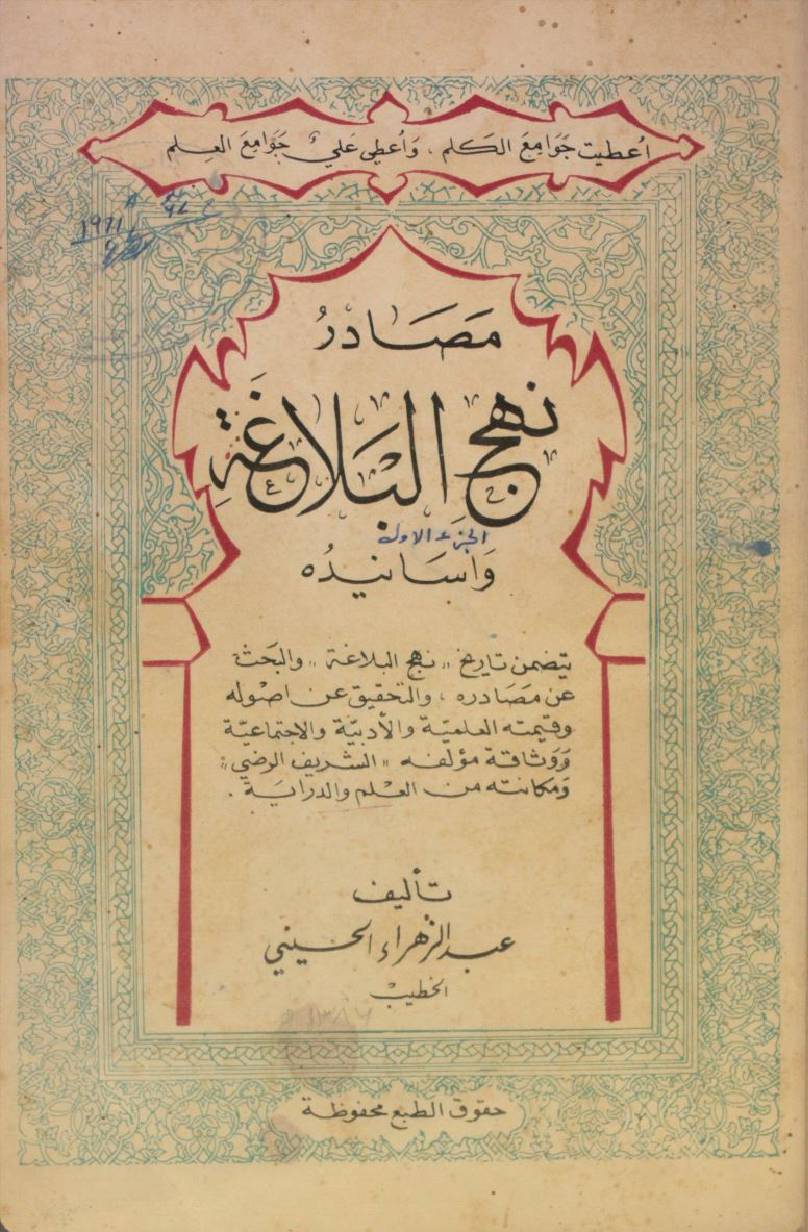 اُعطيت جَوَامِعَ الكَلم ، وَاُعطِي عَليٌ جَوَامِعَ العِلم
1971
مَصَادرُ
نهج البَلاغَةِ
الجزء الاول
وَاسَانيدُه
يتضمن تاريخ « نهج البلاغة » والبَحث
عن مصَادره ، والتحقيق عن اصُوله
وقيمته العلميّة والأدبيّة والاجتماعيّة
وَوَثاقة مؤلفه « الشريف الرضي »
وَمكانته من العْلم والدرايَة .
تأليف
عبد الزهراء الحسيني
الخطيب
حقوق الطبع محفوظة